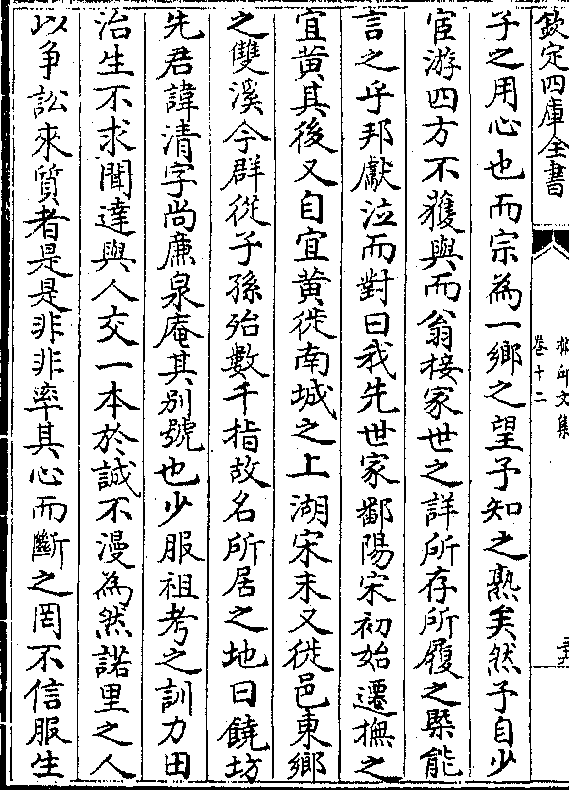 欽定四庫全書
卷十二
子之用心也而宗為一鄉之望予知之熟矣然予自少
宦游四方不獲與而翁接家世之詳所存所履之槩能
言之乎邦獻泣而對曰我先世家鄱陽宋初始遷撫之
宜黄其後又自宜黄徙南城之上湖宋末又徙邑東鄉
之雙溪今群從子孫殆數千指故名所居之地曰饒坊
先君諱清字尚廉泉庵其別號也少服祖考之訓力田
治生不求聞達與人交一本於誠不漫為然諾里之人
以爭訟來質者是是非非率其心而斷之罔不信服生